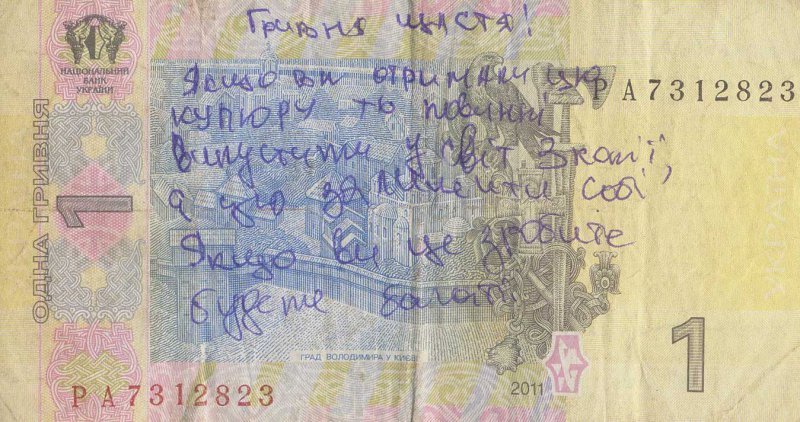 Гривня щастя!
НАЦІОНАЛЬНИЙ
БАНК
УКРАЇНИ
Якщо ви отримали цю
купюру то повинні
РА7312823
випустити у світ 3 копії,
а цю залишити собі
Якщо ви це зробите
будете багаті
ОДНА ГРИВНЯ
1
УКРАЇНА
ГРАД ВОЛОДИМИРА У КИЄВІ
2011
1
РА7312823